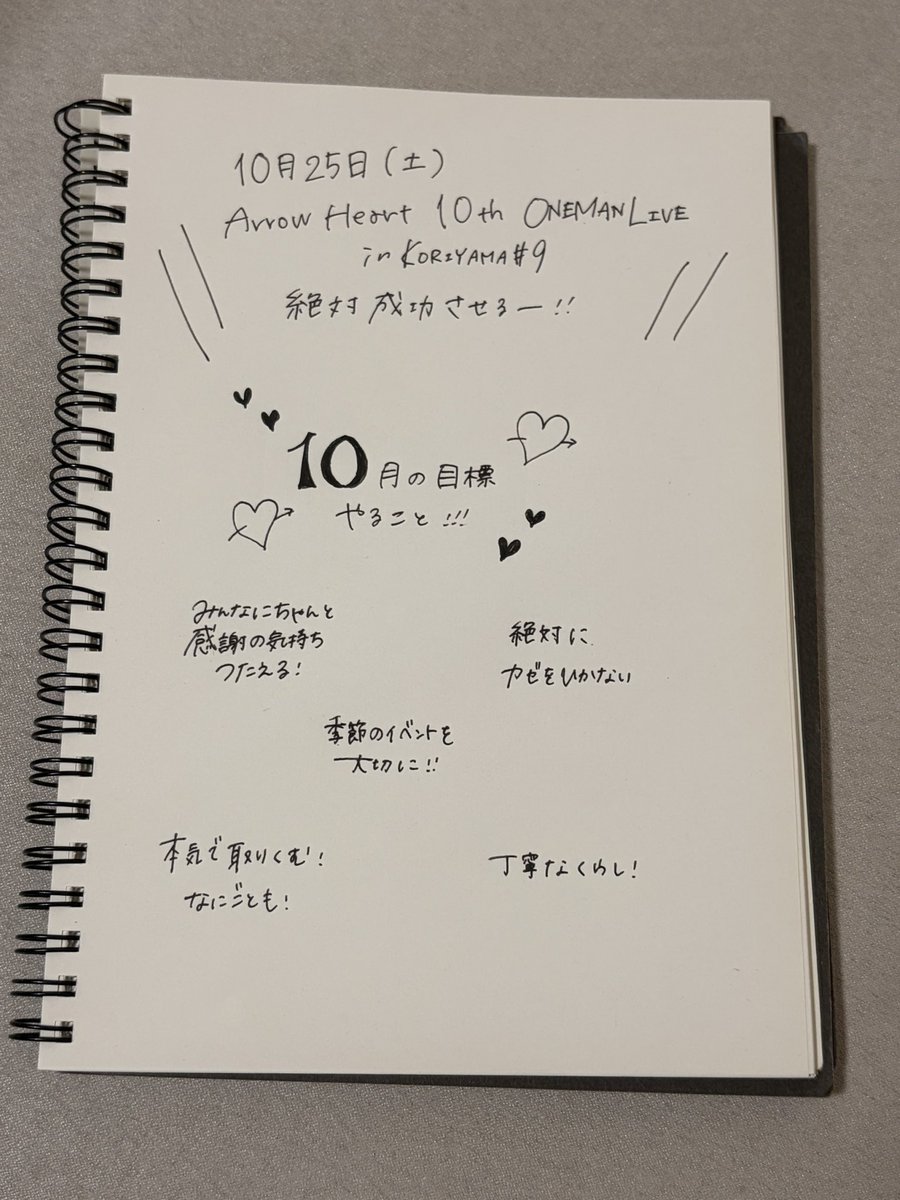 10月25日(土)
Arrow Heart 10th ONEMAN LIVE
in KORIYAMA#9
絶対成功させるー!!
10月の目標
やること!!!
みんなにちゃんと
感謝の気持ち
つたえる!
絶対に
カゼをひかない
季節のイベントを
大切に!!
本気で取りくむ!
なにごとも!
丁寧なくらし!